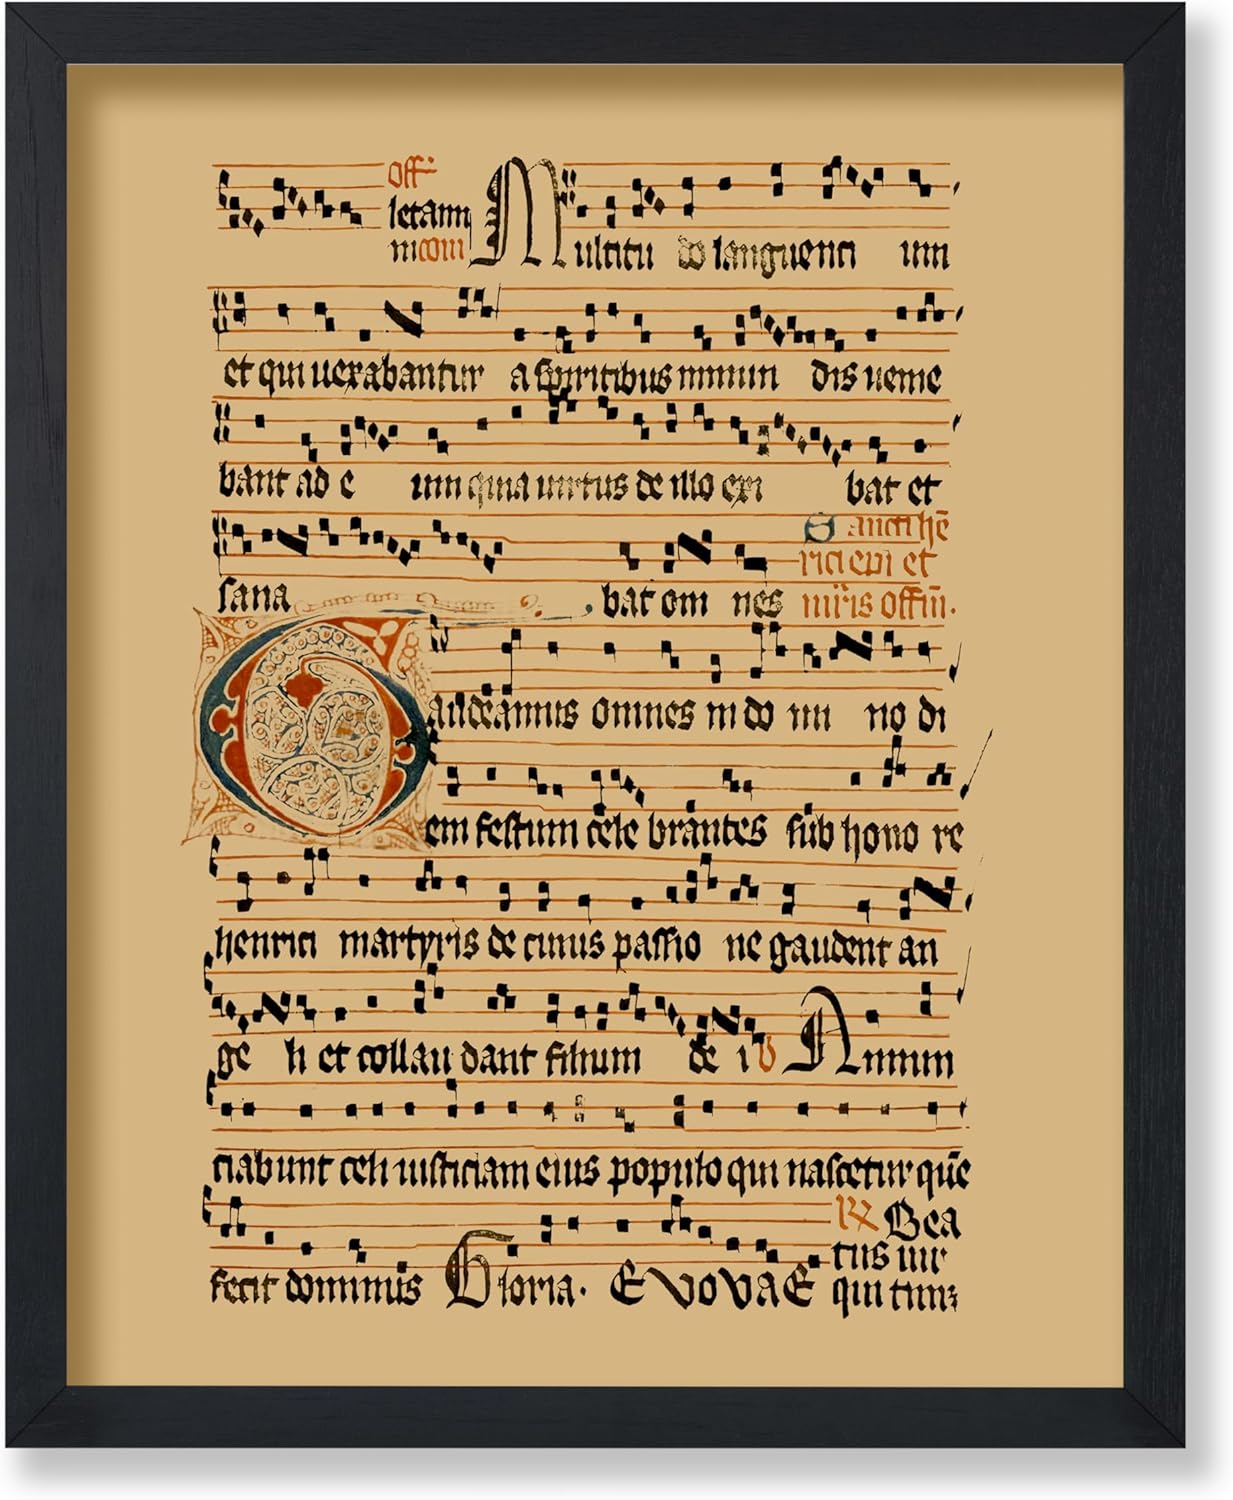 Off̄
letamī
ni com Multitu do languenti um
et qui uexabantur a spiritibus inmun dis uenie
bant ad e um quia uirtus de illo exi bat et
Sancti hē
rici epi et
sana bat om nes mr̄is offm̄.
Gaudeamus omnes in do mi no di
em festum cele brantes sub hono re
henrici martyris de cuius passio ne gaudent an
ge li et collau dant filium de i V Annun
ciabunt celi iusticiam eius populo qui nascetur quē
R Bea
tus uir
fecit dominus Gloria. EVOVAE qui tim3